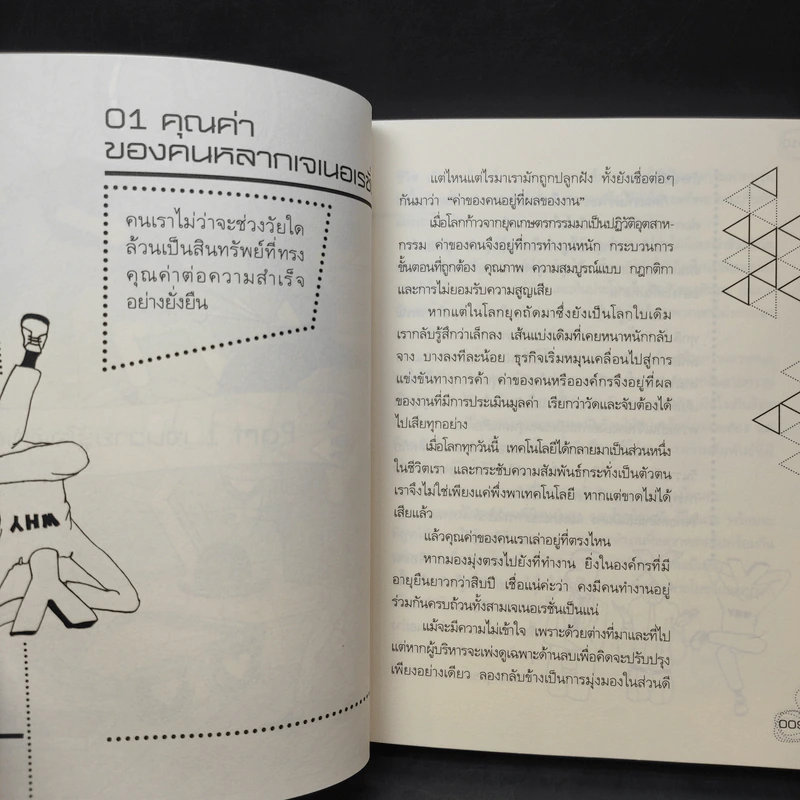 01 คุณค่า
ของคนหลากเจเนอเรชั่
คนเราไม่ว่าจะช่วงวัยใด
ล้วนเป็นสินทรัพย์ที่ทรง
คุณค่าต่อความสำเร็จ
อย่างยั่งยืน
WHY
แต่ไหนแต่ไรมาเรามักถูกปลูกฝัง ทั้งยังเชื่อต่อๆ
กันมาว่า “ค่าของคนอยู่ที่ผลของงาน”
เมื่อโลกก้าวจากยุคเกษตรกรรมมาเป็นปฏิวัติอุตสาห-
กรรม ค่าของคนจึงอยู่ที่การทำงานหนัก กระบวนการ
ขั้นตอนที่ถูกต้อง คุณภาพ ความสมบูรณ์แบบ กฎกติกา
และการไม่ยอมรับความสูญเสีย
หากแต่ในโลกยุคถัดมาซึ่งยังเป็นโลกใบเดิม
เรากลับรู้สึกว่าเล็กลง เส้นแบ่งเดิมที่เคยหนาหนักกลับ
จาง บางลงทีละน้อย ธุรกิจเริ่มหมุนเคลื่อนไปสู่การ
แข่งขันทางการค้า ค่าของคนหรือองค์กรจึงอยู่ที่ผล
ของงานที่มีการประเมินมูลค่า เรียกว่าวัดและจับต้องได้
ไปเสียทุกอย่าง
เมื่อโลกทุกวันนี้ เทคโนโลยีได้กลายมาเป็นส่วนหนึ่ง
ในชีวิตเรา และกระชับความสัมพันธ์กระทั่งเป็นตัวตน
เราจึงไม่ใช่เพียงแค่พึ่งพาเทคโนโลยี หากแต่ขาดไม่ได้
เสียแล้ว
แล้วคุณค่าของคนเราเล่าอยู่ที่ตรงไหน
หากมองมุ่งตรงไปยังที่ทำงาน ยิ่งในองค์กรที่มี
อายุยืนยาวกว่าสิบปี เชื่อแน่ค่ะว่า คงมีคนทำงานอยู่
ร่วมกันครบถ้วนทั้งสามเจเนอเรชั่นเป็นแน่
แม้จะมีความไม่เข้าใจ เพราะด้วยต่างที่มาและที่ไป
แต่หากผู้บริหารจะเพ่งดูเฉพาะด้านลบเพื่อคิดจะปรับปรุง
เพียงอย่างเดียว ลองกลับข้างเป็นการมุ่งมองในส่วนดี
009